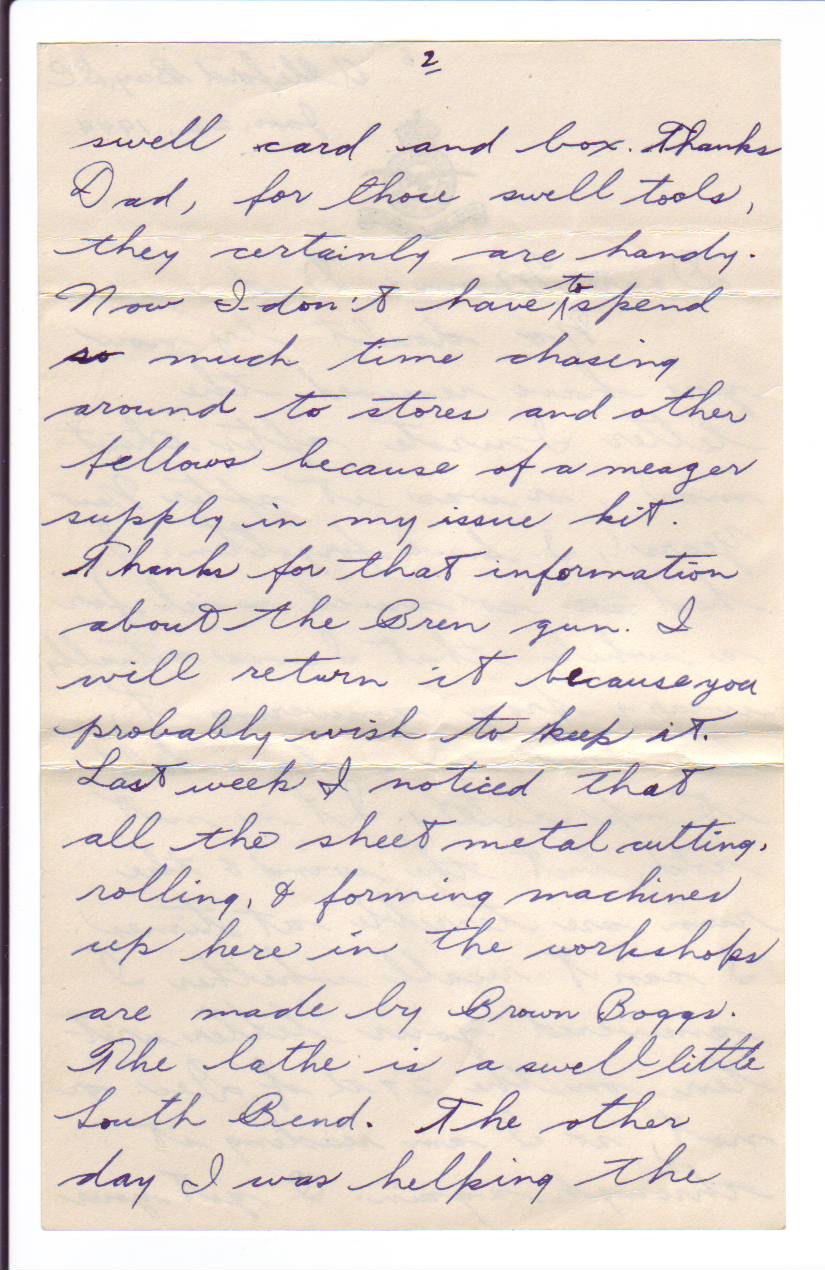 2
swell card and box. Thanks
Dad, for those swell tools,
they certainly are handy.
Now I don't have to spend
so much time chasing
around to stores and other
fellows because of a meager
supply in my issue kit.
Thanks for that information
about the Bren gun. I
will return it because you
probably wish to keep it.
Last week I noticed that
all the sheet metal cutting,
rolling, & forming machines
up here in the workshops
are made by Brown Boggs.
The lathe is a swell little
South Bend. The other
day I was helping the